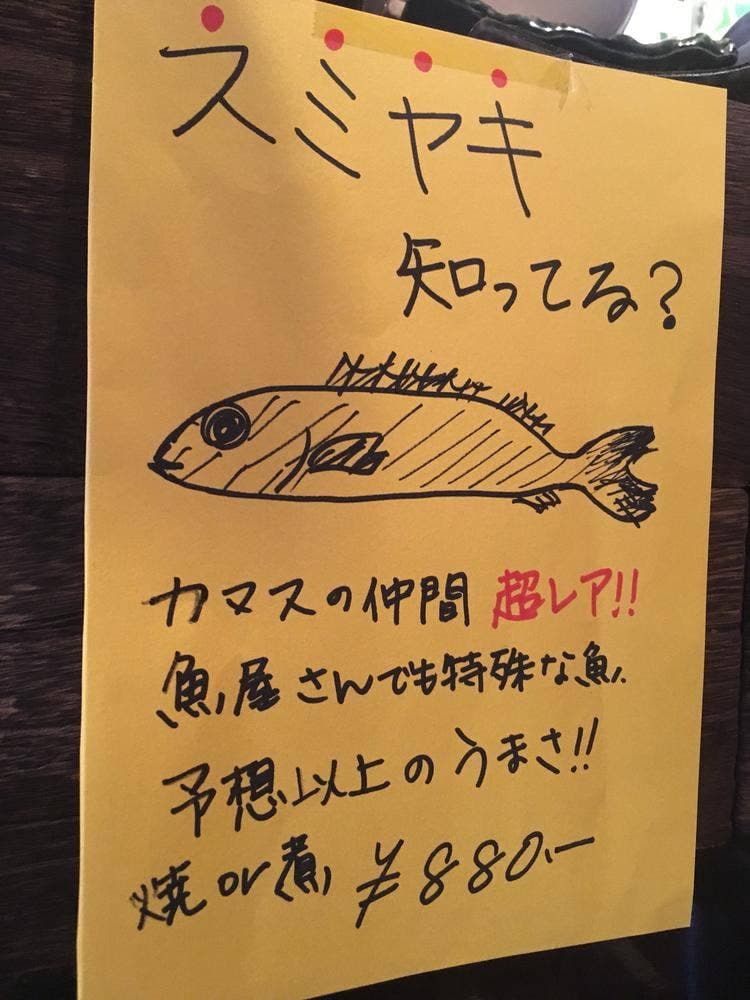 スミヤキ
知ってる?
カマスの仲間 超レア!!
魚屋さんでも特殊な魚.
予想以上のうまさ!!
焼 or 煮 ¥880.-